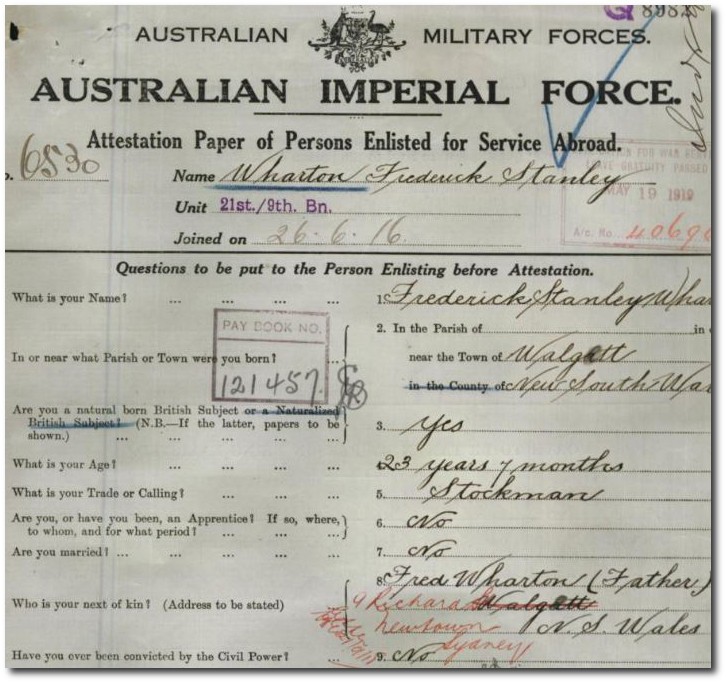 8982
AUSTRALIAN MILITARY FORCES.
AUSTRALIAN IMPERIAL FORCE.
Attestation Paper of Persons Enlisted for Service Abroad.
o. 6530 Name Wharton Frederick Stanley
WAR
GRATUITY PASSED
MAY 19 1919
Unit 21st./9th. Bn.
Joined on 26.6.16.
A/c. No. 4069
Questions to be put to the Person Enlisting before Attestation.
What is your Name? ... ... ... ... 1. Frederick Stanley Whar
PAY BOOK NO.
121457
2. In the Parish of in
In or near what Parish or Town were you born? ... near the Town of Walgett
in the County of New South Wa
Are you a natural born British Subject or a Naturalized
British Subject? (N.B.—If the latter, papers to be
shown.) ... ... ... ... ... 3. Yes
What is your Age? ... ... ... ... 4. 23 years 7 months
What is your Trade or Calling? ... ... ... 5. Stockman
Are you, or have you been, an Apprentice? If so, where,
to whom, and for what period? ... ... ... 6. No
Are you married? ... ... ... ... ... 7. No
8. Fred Wharton (Father)
Who is your next of kin? (Address to be stated) 9 Richard Walgett
newtown N. S. Wales
Sydney
Have you ever been convicted by the Civil Power? ... 9. No